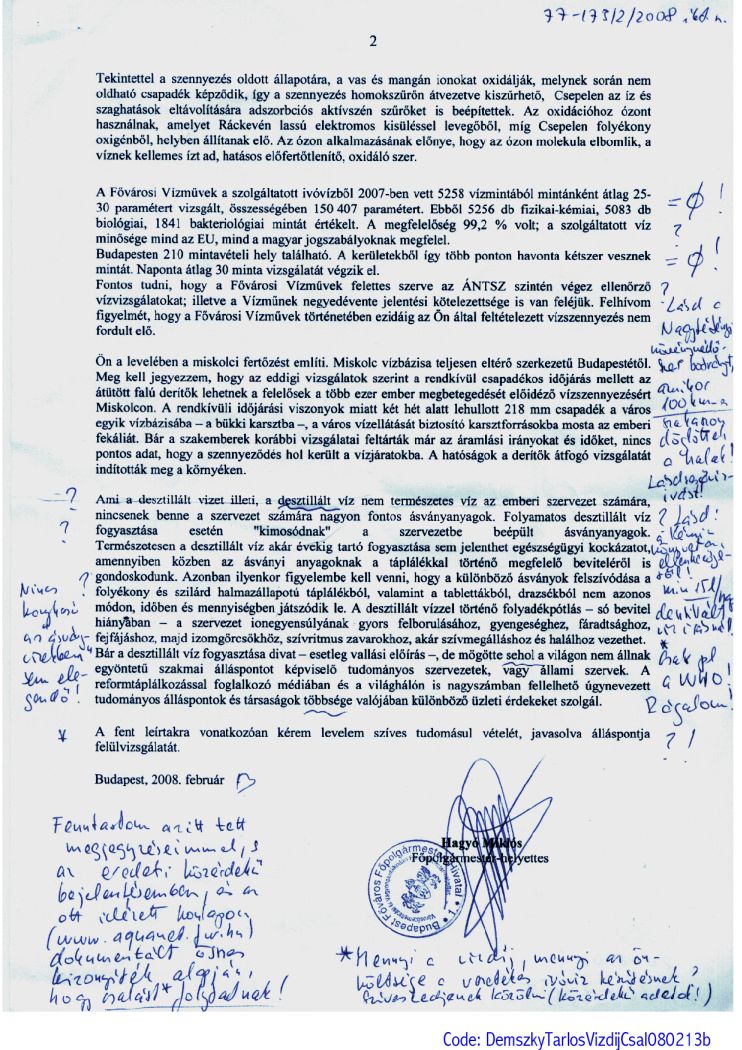 77-173/2/2008
2
Tekintettel a szennyezés oldott állapotára, a vas és mangán ionokat oxidálják, melynek során nem
oldható csapadék képződik, így a szennyezés homokszűrőn átvezetve kiszűrhető, Csepelen az íz és
szaghatások eltávolítására adszorbciós aktívszén szűrőket is beépítettek. Az oxidációhoz ózont
használnak, amelyet Ráckevén lassú elektromos kisüléssel levegőből, míg Csepelen folyékony
oxigénből, helyben állítanak elő. Az ózon alkalmazásának előnye, hogy az ózon molekula elbomlik, a
víznek kellemes ízt ad, hatásos előfertőtlenítő, oxidáló szer.
A Fővárosi Vízművek a szolgáltatott ivóvízből 2007-ben vett 5258 vízmintából mintánként átlag 25-
30 paramétert vizsgált, összességében 150 407 paramétert. Ebből 5256 db fizikai-kémiai, 5083 db
biológiai, 1841 bakteriológiai mintát értékelt. A megfelelőség 99,2 % volt; a szolgáltatott víz
minősége mind az EU, mind a magyar jogszabályoknak megfelel.
Budapesten 210 mintavételi hely található. A kerületekből így több ponton havonta kétszer vesznek
mintát. Naponta átlag 30 minta vizsgálatát végzik el.
Fontos tudni, hogy a Fővárosi Vízművek felettes szerve az ÁNTSZ szintén végez ellenőrző
vízvizsgálatokat; illetve a Vízműnek negyedévente jelentési kötelezettsége is van feléjük. Felhívom
figyelmét, hogy a Fővárosi Vízművek történetében ezidáig az Ön által feltételezett vízszennyezés nem
fordult elő.
= ϕ !
?
= ϕ !
?
Lásd a
Nagytétényi
amikor
100 km-a
a halak!
Ön a levelében a miskolci fertőzést említi. Miskolc vízbázisa teljesen eltérő szerkezetű Budapestétől.
Meg kell jegyezzem, hogy az eddigi vizsgálatok szerint a rendkívül csapadékos időjárás mellett az
átütött falú derítők lehetnek a felelősek a több ezer ember megbetegedését előidéző vízszennyezésért
Miskolcon. A rendkívüli időjárási viszonyok miatt két hét alatt lehullott 218 mm csapadék a város
egyik vízbázisába – a bükki karsztba –, a város vízellátását biztosító karsztforrásokba mosta az emberi
fekáliát. Bár a szakemberek korábbi vizsgálatai feltárták már az áramlási irányokat és időket, nincs
pontos adat, hogy a szennyeződés hol került a vízjáratokba. A hatóságok a derítők átfogó vizsgálatát
indították meg a környéken.
= ?
?
Ami a desztillált vizet illeti, a desztillált víz nem természetes víz az emberi szervezet számára,
nincsenek benne a szervezet számára nagyon fontos ásványianyagok. Folyamatos desztillált víz
fogyasztása esetén "kimosódnak" a szervezetbe beépült ásványanyagok.
Természetesen a desztillált víz akár évekig tartó fogyasztása sem jelenthet egészségügyi kockázatot,
amennyiben közben az ásványi anyagoknak a táplálékkal történő megfelelő beviteléről is
gondoskodunk. Azonban ilyenkor figyelembe kell venni, hogy a különböző ásványok felszívódása a
folyékony és szilárd halmazállapotú táplálékból, valamint a tablettákból, drazsékból nem azonos
módon, időben és mennyiségben játszódik le. A desztillált vízzel történő folyadékpótlás – só bevitel
hiányában – a szervezet ionegyensúlyának gyors felborulásához, gyengeséghez, fáradtsághoz,
fejfájáshoz, majd izomgörcsökhöz, szívritmus zavarokhoz, akár szívmegálláshoz és halálhoz vezethet.
Bár a desztillált víz fogyasztása divat – esetleg vallási előírás –, de mögötte sehol a világon nem állnak
egyöntetű szakmai álláspontot képviselő tudományos szervezetek, vagy állami szervek. A
reformtáplálkozással foglalkozó médiában és a világhálón is nagyszámban fellelhető úgynevezett
tudományos álláspontok és társaságok többsége valójában különböző üzleti érdekeket szolgál.
?
Nincs
az ásvány-
sem ele-
gendő!
? Lásd:
min 15 l/
*
Csak pl
a WHO!
Rágalom!
? !
*
A fent leírtakra vonatkozóan kérem levelem szíves tudomásul vételét, javasolva álláspontja
felülvizsgálatát.
Budapest, 2008. február 13
Hagyó Miklós
Főpolgármester-helyettes
Budapest Főváros Főpolgármesteri Hivatal
• 1. •
Fenntartom az itt tett
megjegyzéseimmel, s
az eredeti közérdekű
bejelentésemben, és az
ott idézett honlapon
(www.aquanet.fw.hu)
dokumentált összes
bizonyíték alapján,
hogy csalást* folytatnak!
*Mennyi a vízdíj, mennyi az ön-
költsége a vezetékes ivóvíz készítésnek?
Szíveskedjenek közölni (közérdekű adatok!)
Code: DemszkyTarlosVizdijCsal080213b